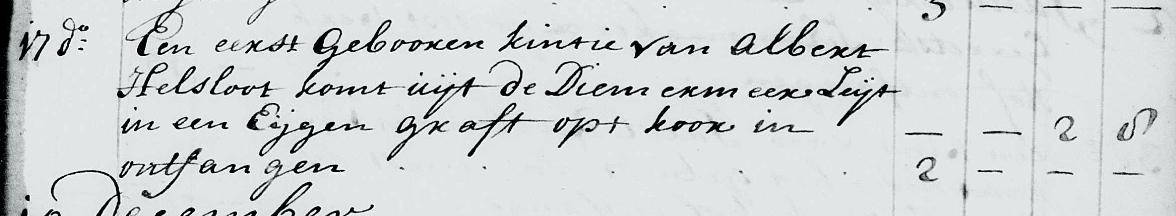 3 — — —
17 do: Een eerst Gebooren kintie van Albert
Helsloot komt uijt de Diemermeer Leijt
in een Eijgen graft opt koor in — — 2 8
ontfangen . . . . 2 — — —
December